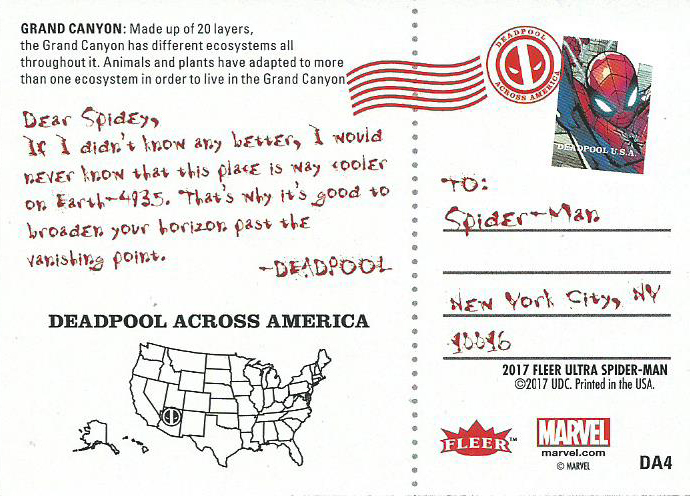 GRAND CANYON: Made up of 20 layers,
the Grand Canyon has different ecosystems all
throughout it. Animals and plants have adapted to more
than one ecosystem in order to live in the Grand Canyon.
Dear Spidey,
If I didn't know any better, I would
never know that this place is way cooler
on Earth-4935. That's why it's good to
broaden your horizon past the
vanishing point.
-DEADPOOL
DEADPOOL ACROSS AMERICA
DEADPOOL
ACROSS AMERICA
DEADPOOL U.S.A.
TO:
Spider-Man
New York City, NY
10016
2017 FLEER ULTRA SPIDER-MAN
©2017 UDC. Printed in the USA.
FLEER™
MARVEL
marvel.com
© MARVEL
DA4